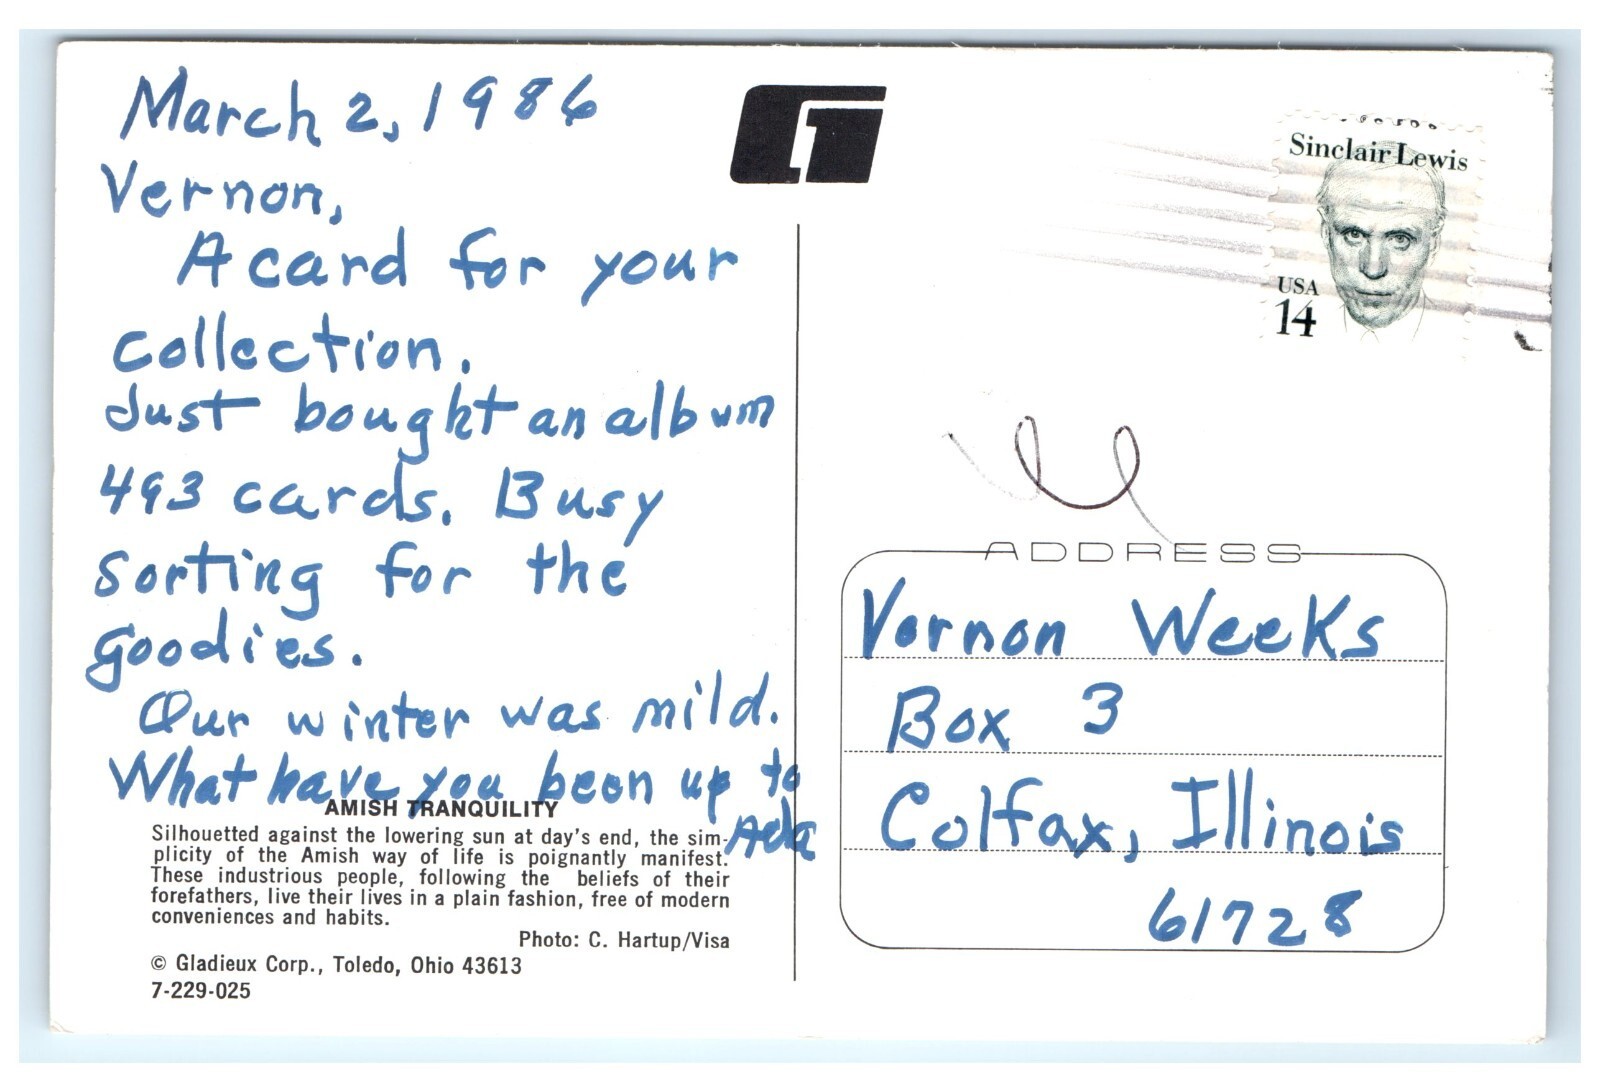 March 2, 1986
Vernon,
A card for your
collection.
Just bought an album
493 cards. Busy
sorting for the
goodies.
Our winter was mild.
What have you been up to
Ada
AMISH TRANQUILITY
Silhouetted against the lowering sun at day's end, the sim-
plicity of the Amish way of life is poignantly manifest.
These industrious people, following the beliefs of their
forefathers, live their lives in a plain fashion, free of modern
conveniences and habits.
Photo: C. Hartup/Visa
© Gladieux Corp., Toledo, Ohio 43613
7-229-025
Sinclair Lewis
USA
14
ADDRESS
Vernon Weeks
Box 3
Colfax, Illinois
61728